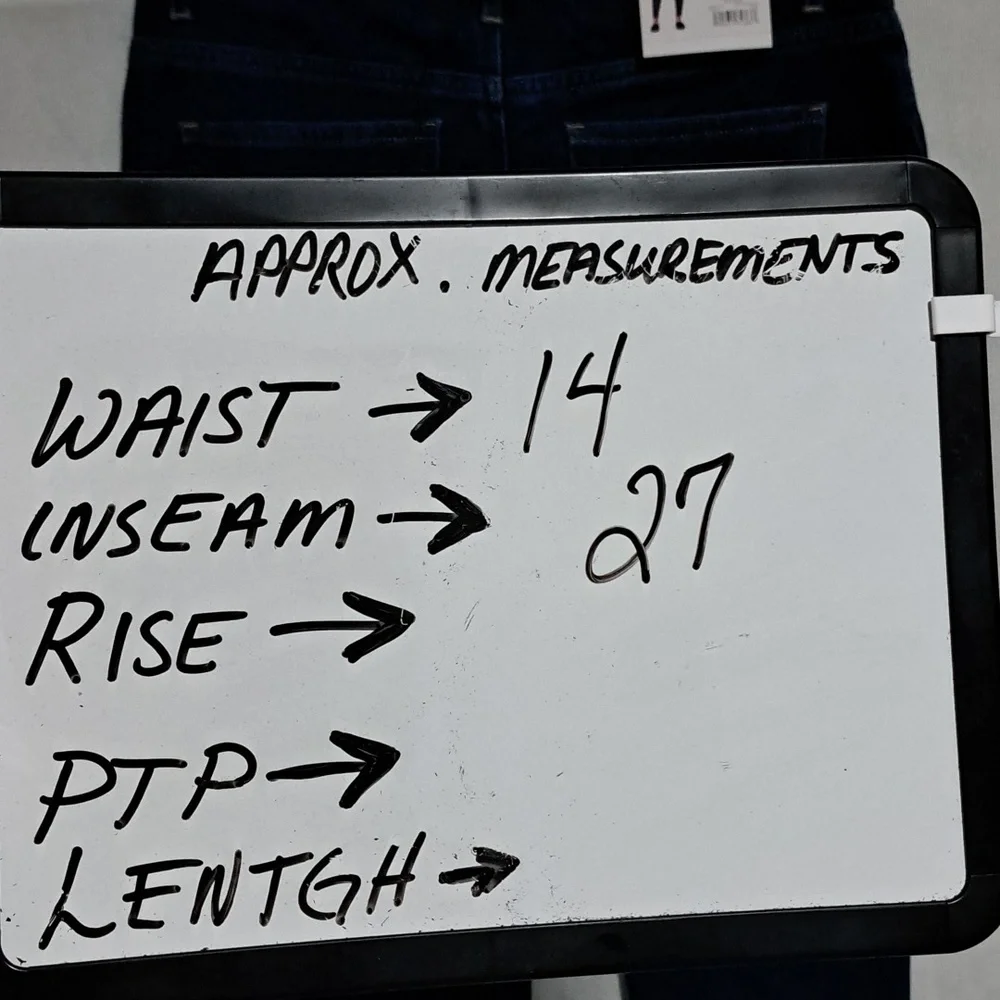 APPROX. MEASUREMENTS
WAIST → 14
INSEAM → 27
RISE →
PTP →
LENTGH →